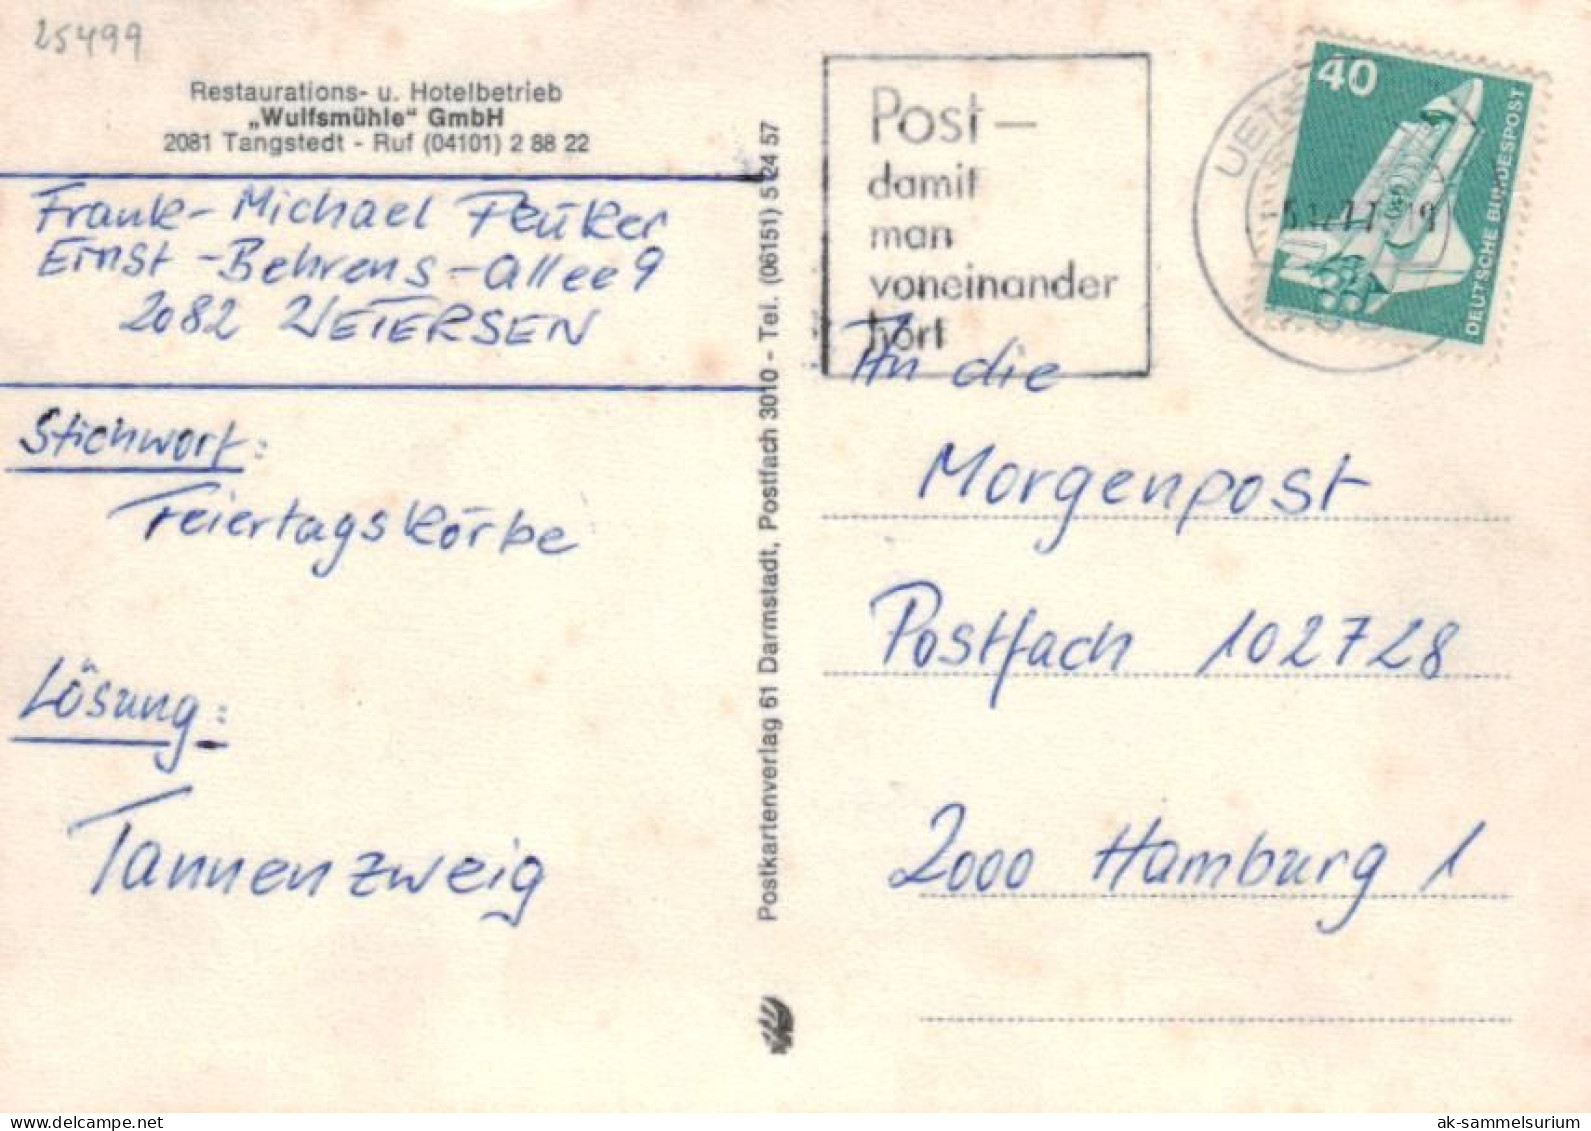 25499
Restaurations- u. Hotelbetrieb
„Wulfsmühle“ GmbH
2081 Tangstedt - Ruf (04101) 2 88 22
Frank-Michael Peuker
Ernst-Behrens-Allee 9
2082 UETERSEN
Stichwort:
Feiertagskörbe
Lösung:
Tannenzweig
Postkartenverlag 61 Darmstadt, Postfach 3010 - Tel. (06151) 5 24 57
Post –
damit
man
voneinander
hört
40
DEUTSCHE BUNDESPOST
An die
Morgenpost
Postfach 102728
2000 Hamburg 1
ak-sammelsurium